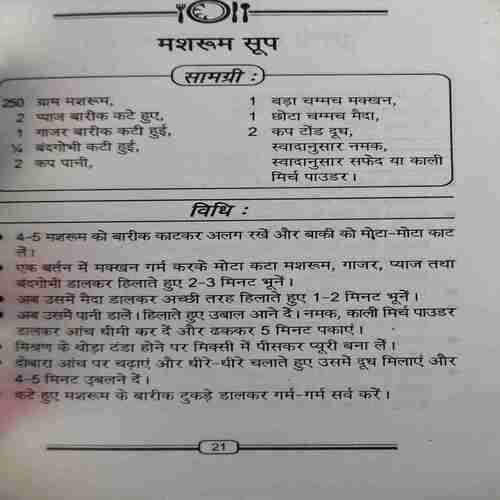 मशरूम सूप
सामग्री :
250 ग्राम मशरूम,
2 प्याज बारीक कटे हुए,
1 गाजर बारीक कटी हुई,
¼ बंदगोभी कटी हुई,
2 कप पानी,
1 बड़ा चम्मच मक्खन,
1 छोटा चम्मच मैदा,
2 कप टोंड दूध,
स्वादानुसार नमक,
स्वादानुसार सफेद या काली
मिर्च पाउडर।
विधि :
• 4-5 मशरूम को बारीक काटकर अलग रखें और बाकी को मोटा-मोटा काट
लें।
• एक बर्तन में मक्खन गर्म करके मोटा कटा मशरूम, गाजर, प्याज तथा
बंदगोभी डालकर हिलाते हुए 2-3 मिनट भूनें।
• अब उसमें मैदा डालकर अच्छी तरह हिलाते हुए 1-2 मिनट भूनें।
• अब उसमें पानी डालें। हिलाते हुए उबाल आने दें। नमक, काली मिर्च पाउडर
डालकर आंच धीमी कर दें और ढककर 5 मिनट पकाएं।
• मिश्रण के थोड़ा ठंडा होने पर मिक्सी में पीसकर प्यूरी बना लें।
• दोबारा आंच पर चढ़ाएं और धीरे-धीरे चलाते हुए उसमें दूध मिलाएं और
4-5 मिनट उबलने दें।
• कटे हुए मशरूम के बारीक टुकड़े डालकर गर्म-गर्म सर्व करें।
21